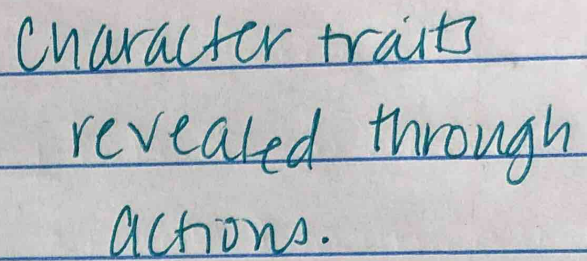 Character traits
revealed through
actions.